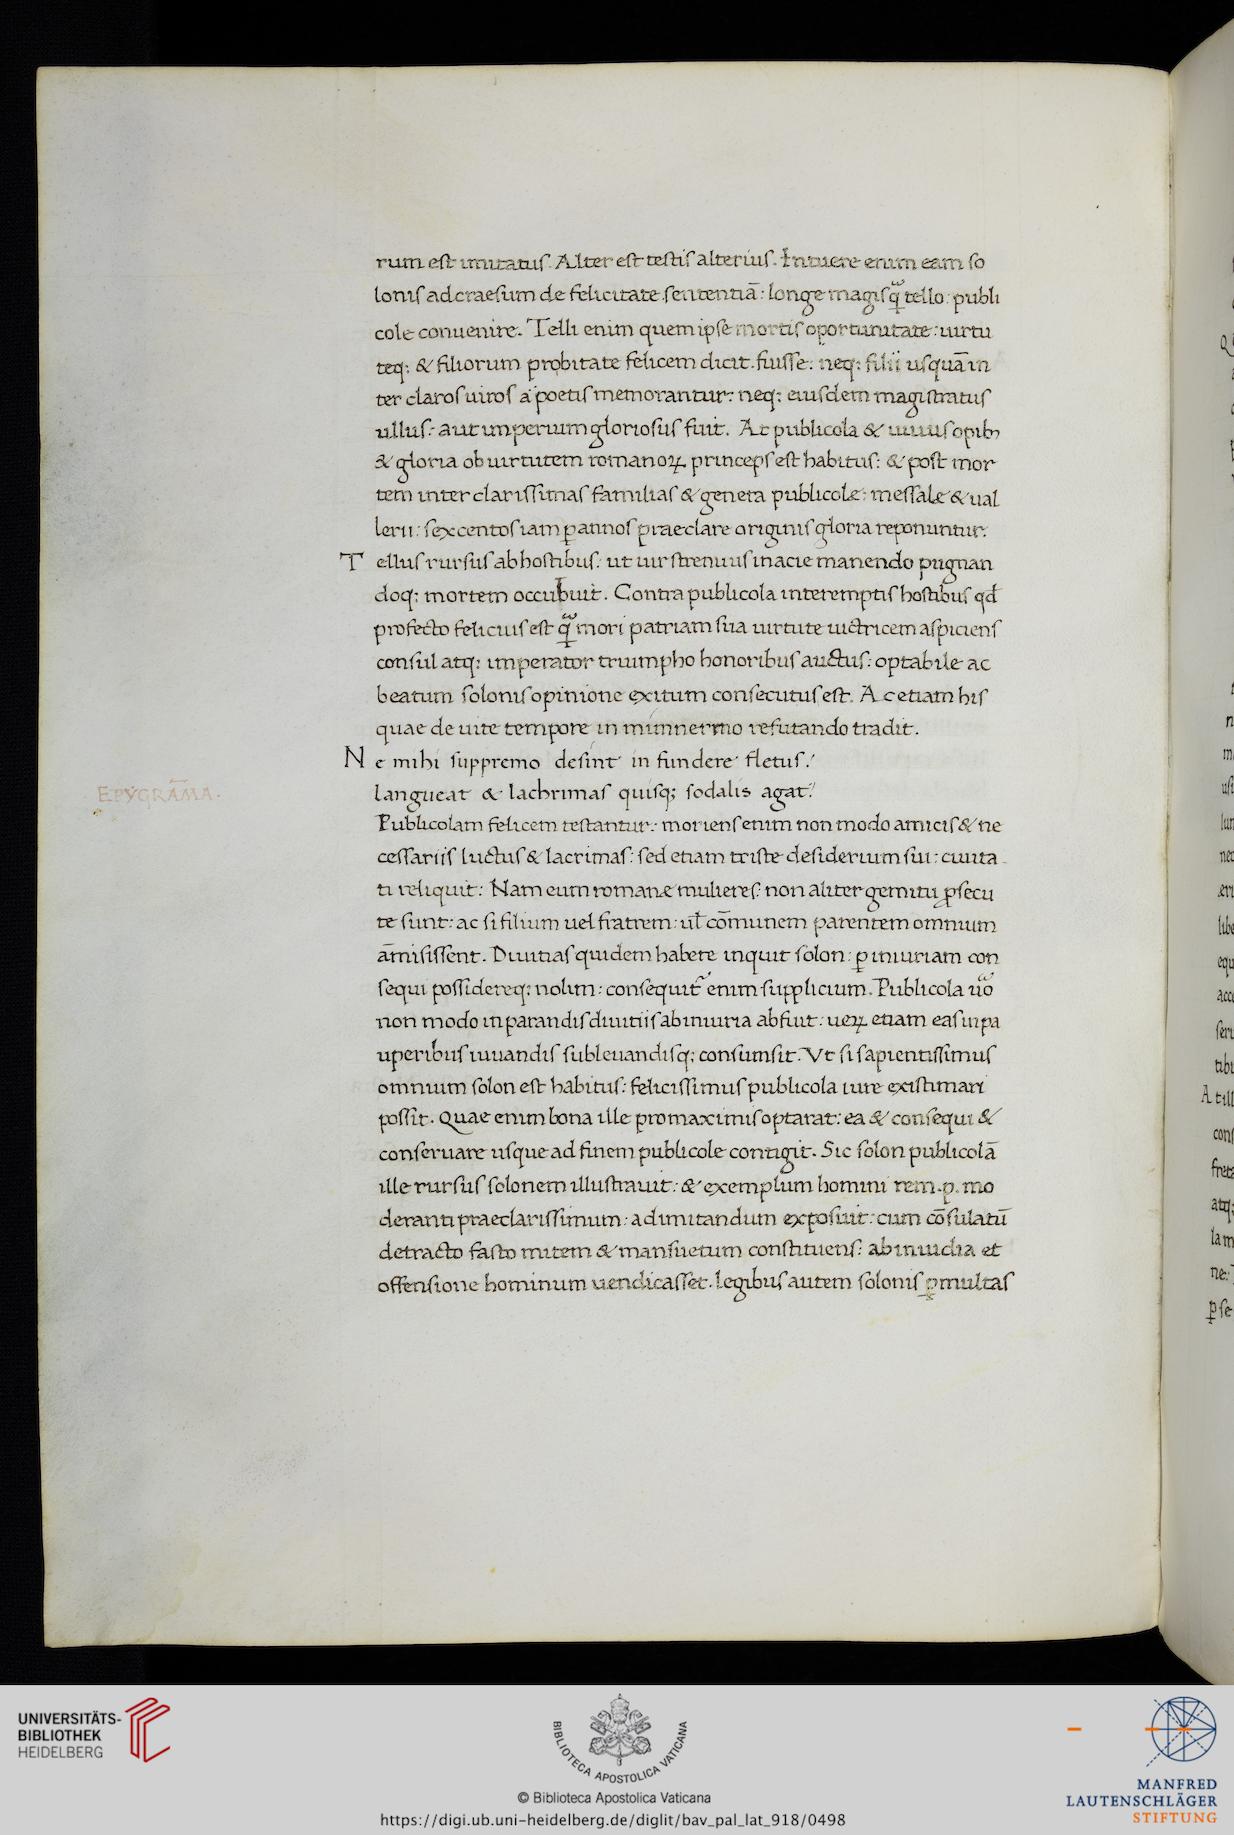 rum est imitatus. Alter est testis alterius. Intuere enim eam so
lonis ad craesum de felicitate sententiā: longe magis q̄ tello: publi
cole conuenire. Telli enim quem ipse mortis oportunitate: uirtu
teq; & filiorum probitate felicem dicit. fuisse: neq; filii usquā in
ter claros uiros a poetis memorantur: neq; eiusdem magistratus
ullus: aut imperium gloriosus fuit. At publicola & uiuus opib;
& gloria ob uirtutem romanoꝝ princeps est habitus: & post mor
tem inter clarissimas familias & genera publicole: messale & ual
lerii: sexcentos iam ꝑ annos praeclare originis gloria reponuntur.
Tellus rursus ab hostibus: ut uir strenuus in acie manendo pugnan
doq; mortem occubuit. Contra publicola interemptis hostibus qđ
profecto felicius est q̄ mori patriam sua uirtute uictricem aspiciens
consul atq; imperator triumpho honoribus auctus: optabile ac
beatum solonis opinione exitum consecutus est. Ac etiam his
quae de uite tempore in mimnermo refutando tradit.
Ne mihi suppremo desint in fundere fletus:
EPYGRĀMA.
langueat & lachrimas quisq; sodalis agat:
Publicolam felicem testantur: moriens enim non modo amicis & ne
cessariis luctus & lacrimas: sed etiam triste desiderium sui: ciuita
ti reliquit: Nam eum romane mulieres: non aliter gemitu ꝓsecu
te sunt: ac si filium uel fratrem: ul̄ cōmunem parentem omnium
amisissent. Diuitias quidem habere inquit solon: ꝑ iniuriam con
sequi possidereq; nolim: consequit̄ enim supplicium. Publicola uo
non modo in parandis diuitiis ab iniuria abfuit: ueꝝ etiam eas in pa
uperibus iuuandis subleuandisq; consumsit. Vt si sapientissimus
omnium solon est habitus: felicissimus publicola iure existimari
possit. Quae enim bona ille pro maximis optarat: ea & consequi &
conseruare usque ad finem publicole contigit. Sic solon publicolā
ille rursus solonem illustrauit: & exemplum homini rem .p. mo
deranti praeclarissimum: ad imitandum exposuit: cum cōsulatū
detracto fasto mitem & mansuetum constituens: ab inuidia et
offensione hominum uendicasset. Legibus autem solonis ꝑmultas
UNIVERSITÄTS-
BIBLIOTHEK
HEIDELBERG
BIBLIOTECA APOSTOLICA VATICANA
© Biblioteca Apostolica Vaticana
https://digi.ub.uni-heidelberg.de/diglit/bav_pal_lat_918/0498
MANFRED
LAUTENSCHLÄGER
STIFTUNG